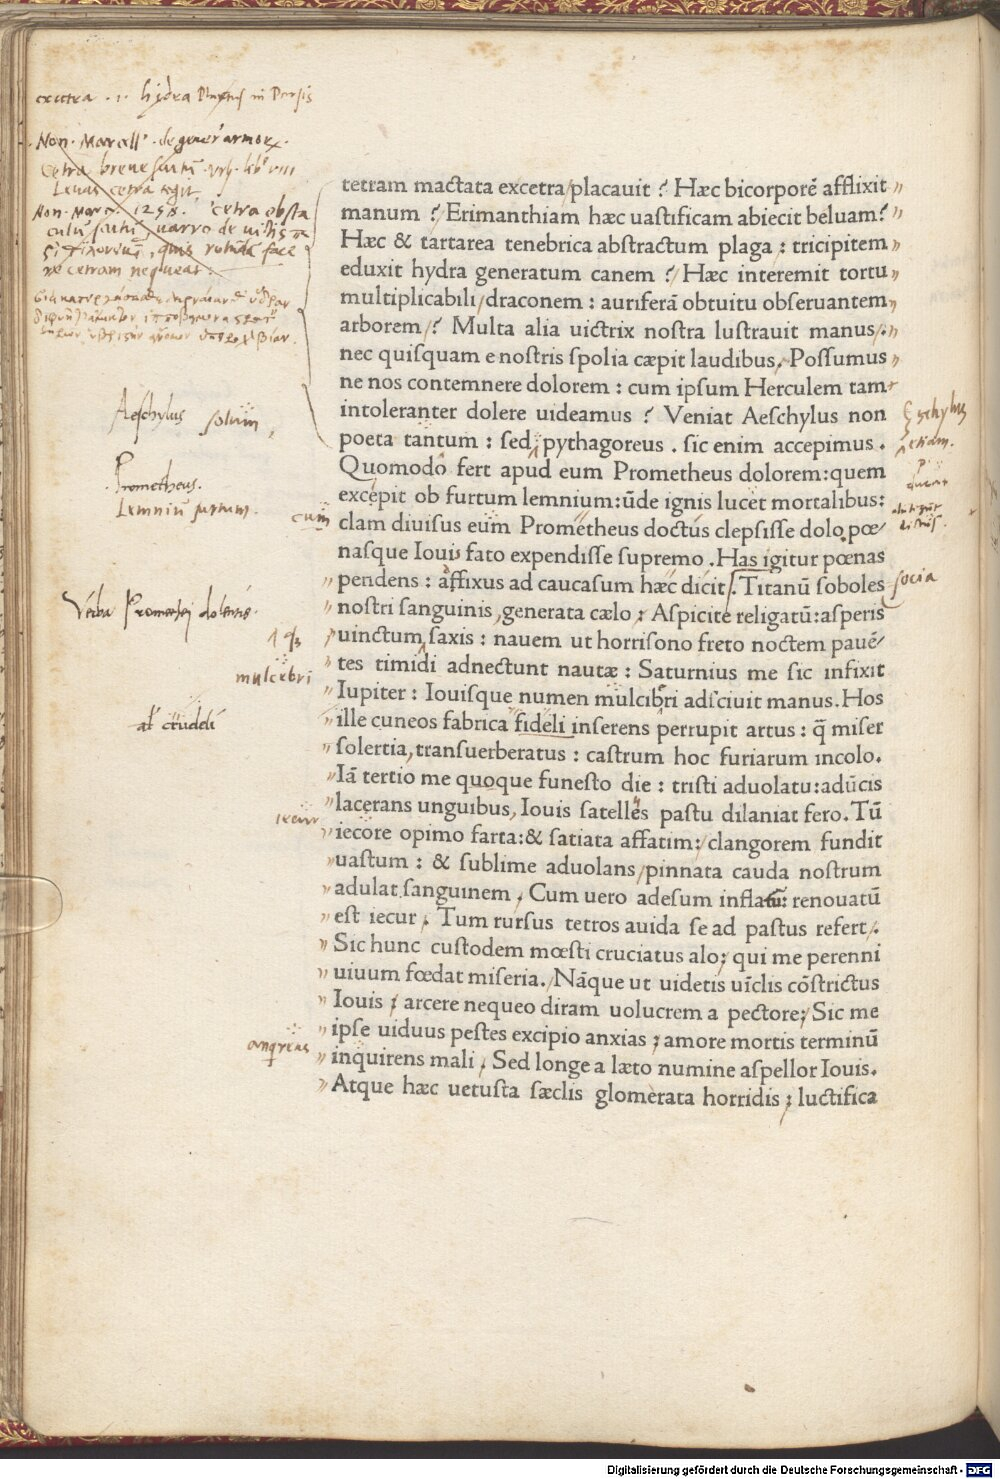 excetra .i. hydra Plautus in Persis
Non. Marcell. de gener armor.
Cetra breve scutu Virg. lib. VIII
Levas cetra tegit
Non. Marc. 1258. cetra obsta
culu scutu varro de
quis rotuda face
re cetram nequeat.
tetram mactata excetra/placauit ? Hæc bicorporē afflixit
manum ? Erimanthiam hæc uastificam abiecit beluam?
Hæc & tartarea tenebrica abstractum plaga : tricipitem
eduxit hydra generatum canem ? Hæc interemit tortu
multiplicabili/draconem : auriferā obtuitu obseruantem
arborem/? Multa alia uictrix nostra lustrauit manus/.
nec quisquam e nostris spolia cæpit laudibus. Possumus
ne nos contemnere dolorem : cum ipsum Herculem tam
intoleranter dolere uideamus ? Veniat Aeschylus non
Aeschylus solum
Eschylus
poeta tantum : sed pythagoreus . sic enim accepimus .
etiam.
Quomodo fert apud eum Prometheus dolorem:quem
Prometheus.
excepit ob furtum lemnium:ūde ignis lucet mortalibus:
Lemniū furtum.
cum
clam diuisus eum Prometheus doctus clepsisse dolo pœ/
nasque Ioui fato expendisse supremo .Has igitur pœnas
pendens : affixus ad caucasum hæc dicit/. Titanū soboles
socia
Verba Promethei dolentis.
nostri sanguinis,generata cælo ; Aspicite religatū:asperis
uinctum saxis : nauem ut horrisono freto noctem pauē/
tes timidi adnectunt nautæ : Saturnius me sic infixit
mulcebri
Iupiter : Iouisque numen mulcibri adsciuit manus. Hos
ille cuneos fabrica fideli inserens perrupit artus : q̄ miser
al' crudeli
solertia,transuerberatus : castrum hoc furiarum incolo.
Iā tertio me quoque funesto die : tristi aduolatu:adūcis
lacerans unguibus, Iouis satelles pastu dilaniat fero. Tū
iecore opimo farta:& satiata affatim:/clangorem fundit
uastum : & sublime aduolans/pinnata cauda nostrum
adulat sanguinem . Cum uero adesum inflatū: renouatū
est iecur . Tum rursus tetros auida se ad pastus refert/.
Sic hunc custodem mœsti cruciatus alo; qui me perenni
uiuum fœdat miseria./Nāque ut uidetis uīclis cōstrictus
Iouis ; arcere nequeo diram uolucrem a pectore;/Sic me
ipse uiduus pestes excipio anxias ; amore mortis terminū
anquirens
inquirens mali . Sed longe a læto numine aspellor Iouis.
Atque hæc uetusta sæclis glomerata horridis ; luctifica
Digitalisierung gefördert durch die Deutsche Forschungsgemeinschaft - DFG